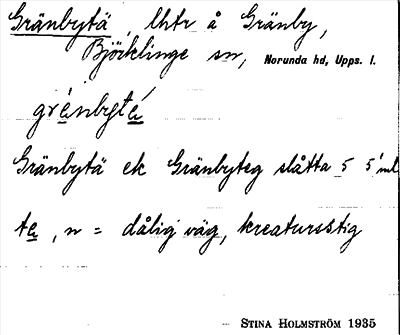 Gränbytä, lhtr å Gränby,
Björklinge sn, Norunda hd, Upps. l.
gränbytä́
Gränbytä ek Gränbyteg slåtta 5 5'ml
tä, n = dålig väg, kreatursstig
STINA HOLMSTRÖM 1935